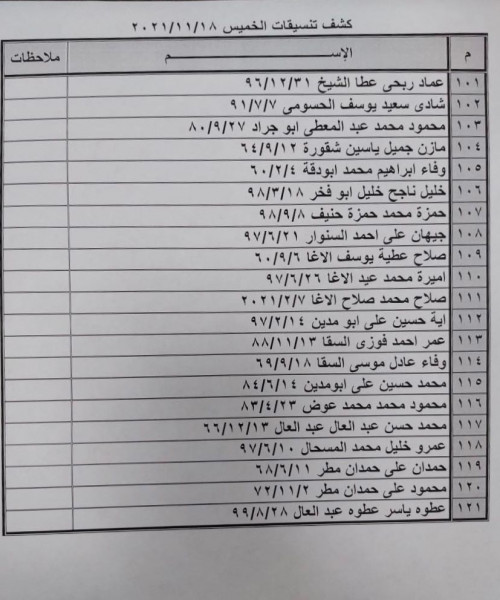 كشف تنسيقات الخميس ٢٠٢١/١١/١٨
م الإســـــم ملاحظات
١٠١ عماد ربحى عطا الشيخ ٩٦/١٢/٣١
١٠٢ شادى سعيد يوسف الحسومى ٩١/٧/٧
١٠٣ محمود محمد عبد المعطى ابو جراد ٨٠/٩/٢٧
١٠٤ مازن جميل ياسين شقورة ٦٤/٩/١٢
١٠٥ وفاء ابراهيم محمد ابودقة ٦٠/٢/٤
١٠٦ خليل ناجح خليل ابو فخر ٩٨/٣/١٨
١٠٧ حمزة محمد حمزة حنيف ٩٨/٩/٨
١٠٨ جيهان على احمد السنوار ٩٧/٦/٢١
١٠٩ صلاح عطية يوسف الاغا ٦٠/٩/٦
١١٠ اميرة محمد عيد الاغا ٩٧/٦/٢٦
١١١ صلاح محمد صلاح الاغا ٢٠٢١/٢/٧
١١٢ اية حسين على ابو مدين ٩٧/٢/١٤
١١٣ عمر احمد فوزى السقا ٨٨/١١/١٣
١١٤ وفاء عادل موسى السقا ٦٩/٩/١٨
١١٥ محمد حسين على ابومدين ٨٤/٦/١٤
١١٦ محمود محمد محمد عوض ٨٣/٤/٢٣
١١٧ محمد حسن عبد العال عبد العال ٦٦/١٢/١٣
١١٨ عمرو خليل محمد المسحال ٩٧/٦/١٠
١١٩ حمدان على حمدان مطر ٦٨/٦/١١
١٢٠ محمود على حمدان مطر ٧٢/١١/٢
١٢١ عطوه ياسر عطوه عبد العال ٩٩/٨/٢٨